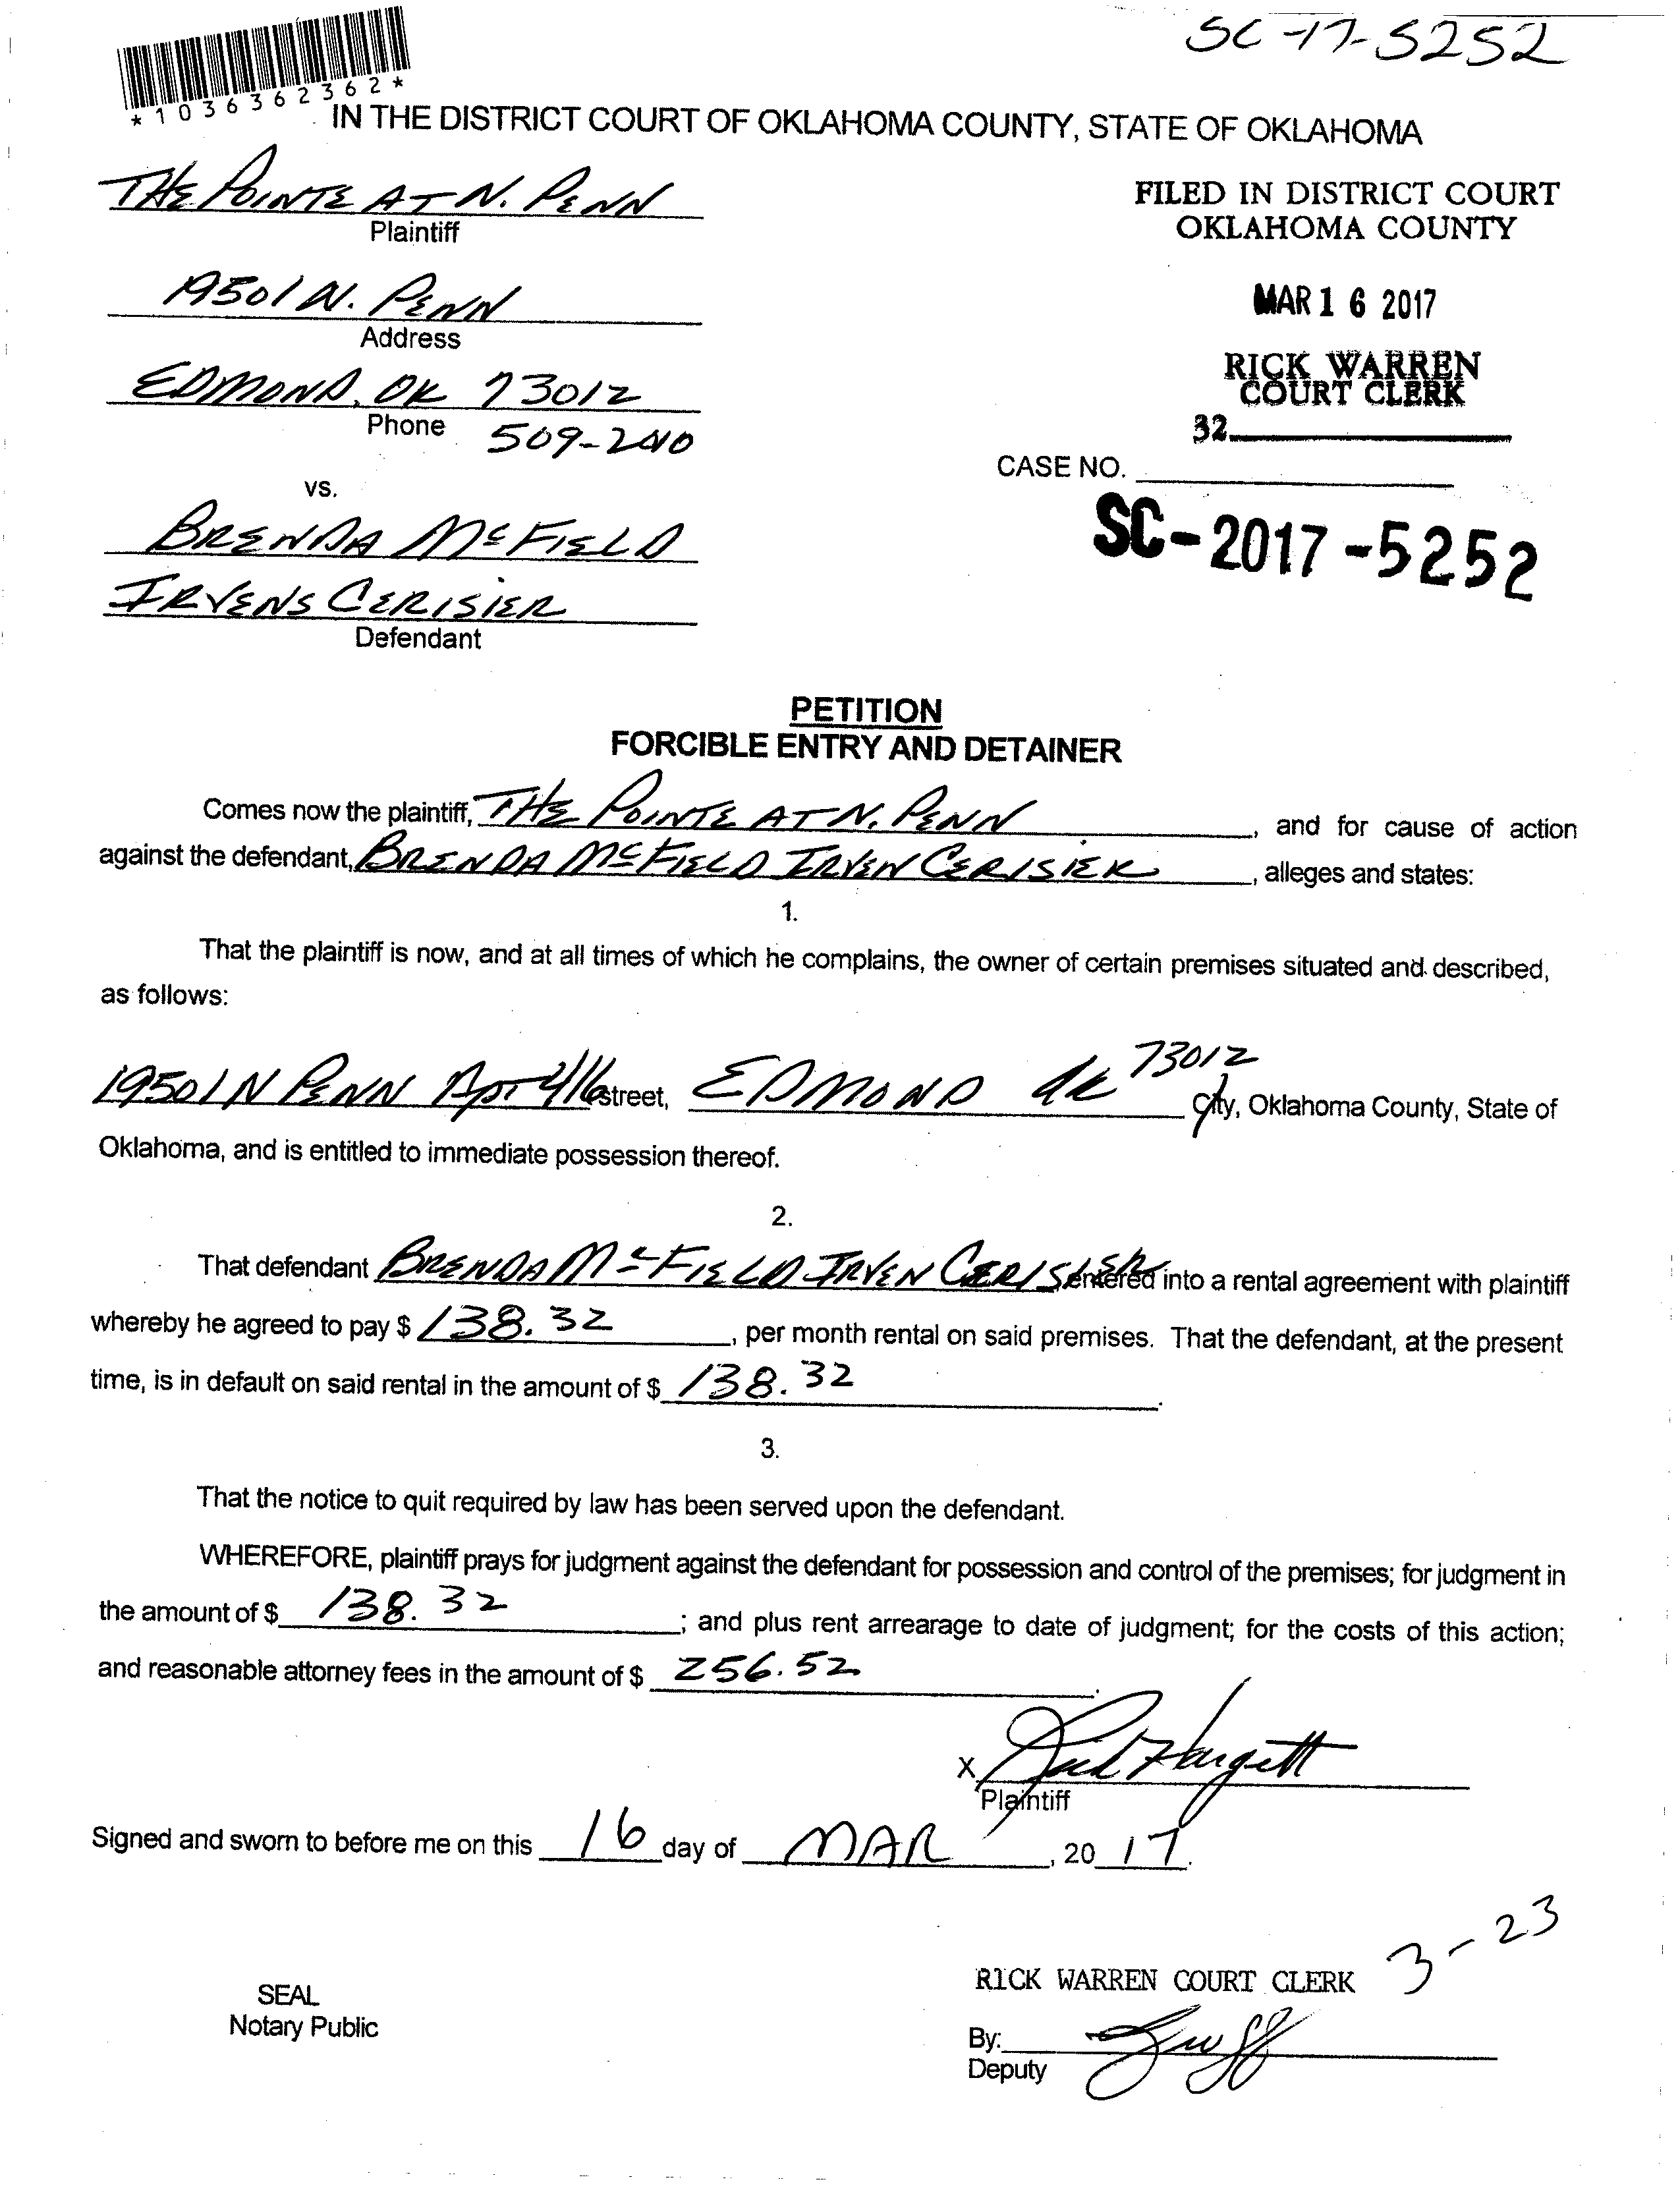 SC-17-5252
*1036362362*
IN THE DISTRICT COURT OF OKLAHOMA COUNTY, STATE OF OKLAHOMA
THE POINTE AT N. PENN
Plaintiff
FILED IN DISTRICT COURT
OKLAHOMA COUNTY
19501 N. PENN
Address
MAR 16 2017
EDMOND, OK 73012
RICK WARREN
COURT CLERK
Phone 509-2410
32
CASE NO.
vs.
SC-2017-5252
BRENDA McFIELD
IRVENS CERISIER
Defendant
PETITION
FORCIBLE ENTRY AND DETAINER
Comes now the plaintiff, THE POINTE AT N. PENN, and for cause of action
against the defendant, BRENDA McFIELD IRVEN CERISIER, alleges and states:
1.
That the plaintiff is now, and at all times of which he complains, the owner of certain premises situated and described,
as follows:
19501 N PENN APT 416 street, EDMOND OK 73012 City, Oklahoma County, State of
Oklahoma, and is entitled to immediate possession thereof.
2.
That defendant BRENDA McFIELD IRVEN CERISIER entered into a rental agreement with plaintiff
whereby he agreed to pay $ 138.32, per month rental on said premises. That the defendant, at the present
time, is in default on said rental in the amount of $ 138.32.
3.
That the notice to quit required by law has been served upon the defendant.
WHEREFORE, plaintiff prays for judgment against the defendant for possession and control of the premises; for judgment in
the amount of $ 138.32; and plus rent arrearage to date of judgment; for the costs of this action;
and reasonable attorney fees in the amount of $ 256.52.
X Hargett
Plaintiff
Signed and sworn to before me on this 16 day of MAR, 2017.
3-23
RICK WARREN COURT CLERK
SEAL
Notary Public
By:
Deputy